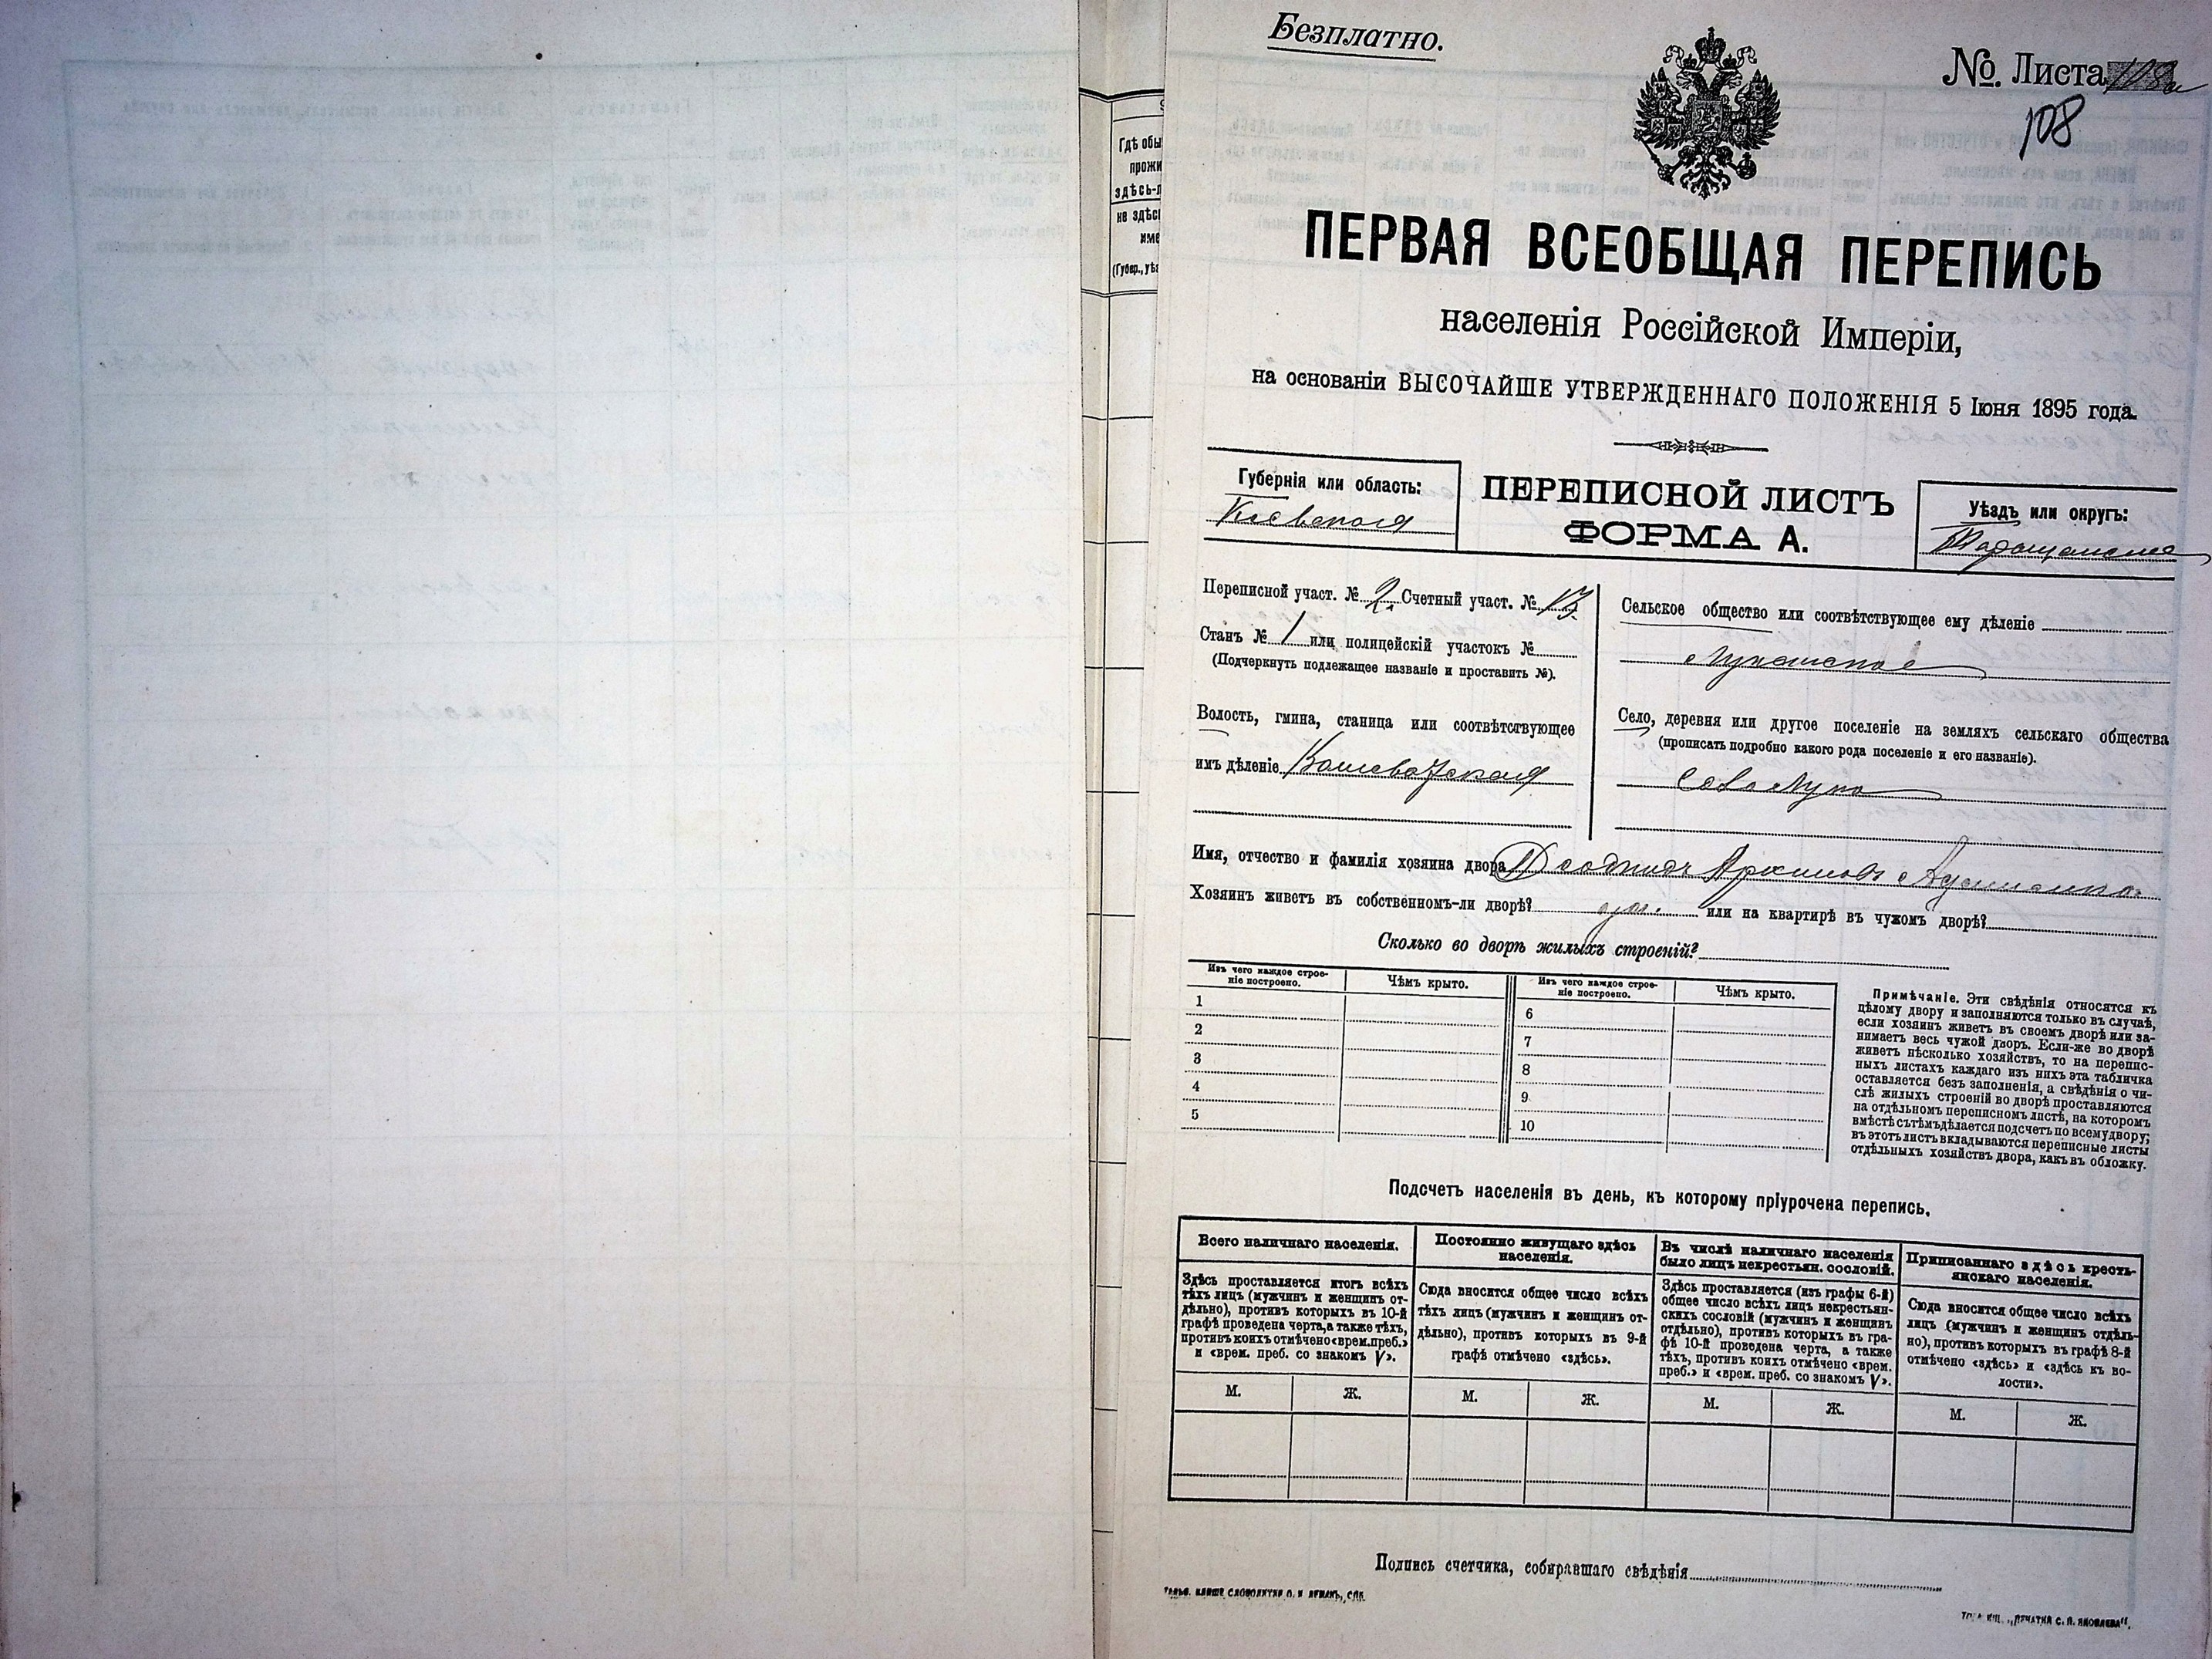 Безплатно.
№. Листа 108а
108
Гдѣ обы
прожи
здѣсь-л
не здѣс
име
(Губер., уѣз
ПЕРВАЯ ВСЕОБЩАЯ ПЕРЕПИСЬ
населенія Россійской Имперіи,
на основаніи ВЫСОЧАЙШЕ УТВЕРЖДЕННАГО ПОЛОЖЕНІЯ 5 Іюня 1895 года.
Губернія или область:
Кіевская
ПЕРЕПИСНОЙ ЛИСТЪ
ФОРМА А.
Уѣздъ или округъ:
Таращанскій
Переписной участ. № 2. Счетный участ. № 13.
Станъ № 1 или полицейскій участокъ №
(Подчеркнуть подлежащее названіе и проставить №).
Волость, гмина, станица или соотвѣтствующее
имъ дѣленіе Кошеватская
Сельское общество или соотвѣтствующее ему дѣленіе
Лукянское
Село, деревня или другое поселеніе на земляхъ сельскаго общества
(прописать подробно какого рода поселеніе и его названіе).
Село Лука
Имя, отчество и фамилія хозяина двора
Хозяинъ живетъ въ собственномъ-ли дворѣ? или на квартирѣ въ чужомъ дворѣ?
Сколько во дворѣ жилыхъ строеній?
Изъ чего каждое строе-
ніе построено.
Чѣмъ крыто.
1
2
3
4
5
Изъ чего каждое строе-
ніе построено.
Чѣмъ крыто.
6
7
8
9
10
Примѣчаніе. Эти свѣдѣнія относятся къ
цѣлому двору и заполняются только въ случаѣ,
если хозяинъ живетъ въ своемъ дворѣ или за-
нимаетъ весь чужой дворъ. Если-же во дворѣ
живетъ нѣсколько хозяйствъ, то на перепис-
ныхъ листахъ каждаго изъ нихъ эта табличка
оставляется безъ заполненія, а свѣдѣнія о чи-
слѣ жилыхъ строеній во дворѣ проставляются
на отдѣльномъ переписномъ листѣ, на которомъ
вмѣстѣ съ тѣмъ дѣлается подсчетъ по всему двору;
въ этотъ листъ вкладываются переписные листы
отдѣльныхъ хозяйствъ двора, какъ въ обложку.
Подсчетъ населенія въ день, къ которому пріурочена перепись.
Всего наличнаго населенія.
Здѣсь проставляется итогъ всѣхъ
тѣхъ лицъ (мужчинъ и женщинъ от-
дѣльно), противъ которыхъ въ 10-й
графѣ проведена черта, а также тѣхъ,
противъ коихъ отмѣчено «врем. преб.»
и «врем. преб. со знакомъ V».
М.
Ж.
Постоянно живущаго здѣсь
населенія.
Сюда вносится общее число всѣхъ
тѣхъ лицъ (мужчинъ и женщинъ от-
дѣльно), противъ которыхъ въ 9-й
графѣ отмѣчено «здѣсь».
М.
Ж.
Въ числѣ наличнаго населенія
было лицъ некрестьян. сословій.
Здѣсь проставляется (изъ графы 6-й)
общее число всѣхъ лицъ некрестьян-
скихъ сословій (мужчинъ и женщинъ
отдѣльно), противъ которыхъ въ гра-
фѣ 10-й проведена черта, а также
тѣхъ, противъ коихъ отмѣчено «врем.
преб.» и «врем. преб. со знакомъ V».
М.
Ж.
Приписаннаго здѣсь кресть-
янскаго населенія.
Сюда вносится общее число всѣхъ
лицъ (мужчинъ и женщинъ отдѣль-
но), противъ которыхъ въ графѣ 8-й
отмѣчено «здѣсь» и «здѣсь къ во-
лости».
М.
Ж.
Подпись счетчика, собиравшаго свѣдѣнія
СЛОВОЛИТНЯ О. И. ЛЕМАНЪ, СПБ.
„ПЕЧАТНЯ С. П. ЯКОВЛЕВА“.